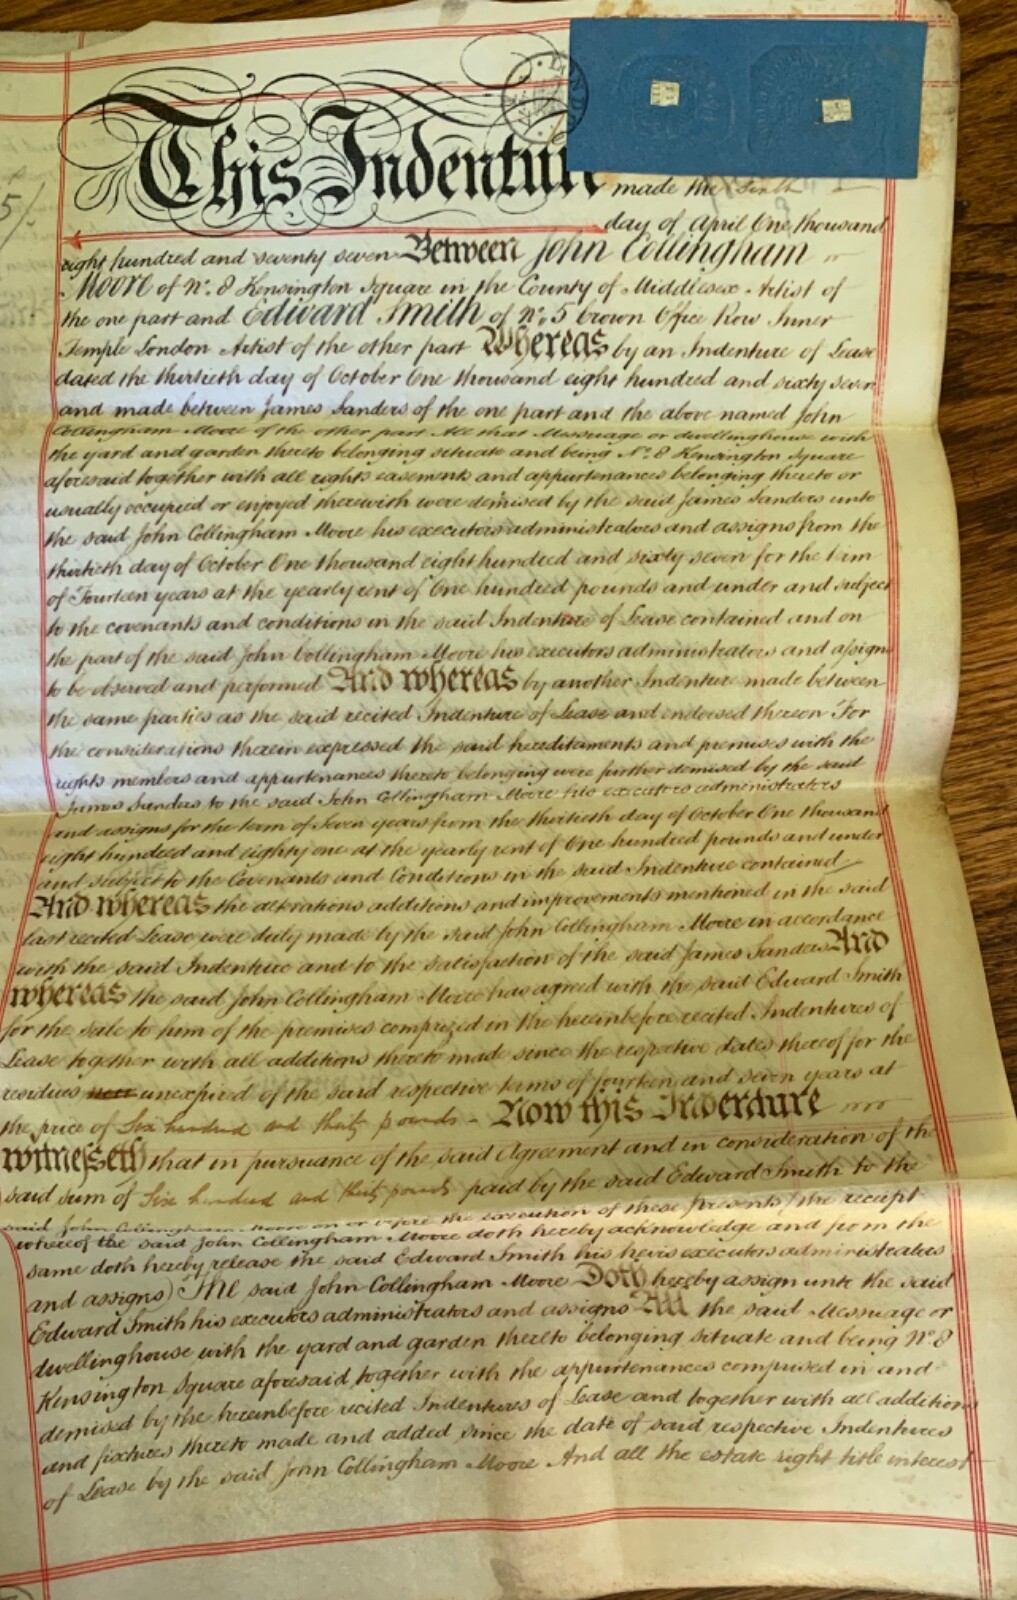 5/.
This Indenture made the Sixth
day of April One thousand
eight hundred and seventy seven Between John Collingham
Moore of No. 8 Kensington Square in the County of Middlesex Artist of
the one part and Edward Smith of No. 5 Crown Office Row Inner
Temple London Artist of the other part Whereas by an Indenture of Lease
dated the thirtieth day of October One thousand eight hundred and sixty seven
and made between James Sanders of the one part and the above named John
Collingham Moore of the other part All that Messuage or dwellinghouse with
the yard and garden thereto belonging situate and being No. 8 Kensington Square
aforesaid together with all rights easements and appurtenances belonging thereto or
usually occupied or enjoyed therewith were demised by the said James Sanders unto
the said John Collingham Moore his executors administrators and assigns from the
thirtieth day of October One thousand eight hundred and sixty seven for the term
of Fourteen years at the yearly rent of One hundred pounds and under and subject
to the covenants and conditions in the said Indenture of Lease contained and on
the part of the said John Collingham Moore his executors administrators and assigns
to be observed and performed And whereas by another Indenture made between
the same parties as the said recited Indenture of Lease and endorsed thereon For
the considerations therein expressed the said hereditaments and premises with the
rights members and appurtenances thereto belonging were further demised by the said
James Sanders to the said John Collingham Moore his executors administrators
and assigns for the term of Seven years from the thirtieth day of October One thousand
eight hundred and eighty one at the yearly rent of One hundred pounds and under
and subject to the Covenants and Conditions in the said Indenture contained
And whereas the alterations additions and improvements mentioned in the said
last recited Lease were duly made by the said John Collingham Moore in accordance
with the said Indenture and to the satisfaction of the said James Sanders And
whereas the said John Collingham Moore has agreed with the said Edward Smith
for the sale to him of the premises comprized in the hereinbefore recited Indentures of
Lease together with all additions thereto made since the respective dates thereof for the
residues now unexpired of the said respective terms of fourteen and seven years at
the price of Six hundred and thirty pounds - Now this Indenture
witnesseth that in pursuance of the said Agreement and in consideration of the
said sum of Six hundred and thirty pounds paid by the said Edward Smith to the
said John Collingham Moore on or before the execution of these Presents (the receipt
whereof the said John Collingham Moore doth hereby acknowledge and from the
same doth hereby release the said Edward Smith his heirs executors administrators
and assigns) The said John Collingham Moore Doth hereby assign unto the said
Edward Smith his executors administrators and assigns All the said Messuage or
dwellinghouse with the yard and garden thereto belonging situate and being No. 8
Kensington Square aforesaid together with the appurtenances comprised in and
demised by the hereinbefore recited Indentures of Lease and together with all additions
and fixtures thereto made and added since the date of said respective Indentures
of Lease by the said John Collingham Moore And all the estate right title interest